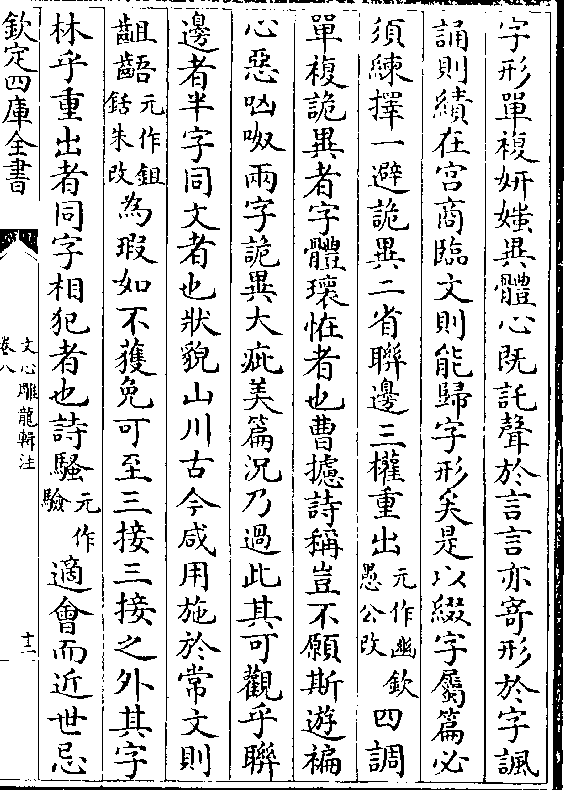 字形單複妍媸異體心既託聲於言言亦寄形於字諷
誦則績在宫商臨文則能歸字形矣是以綴字屬篇必
須練擇一避詭異二省聯邊三權重出元作幽欽愚公改四調
單複詭異者字體瓌怪者也曹攄詩稱豈不願斯遊褊
心惡㕼呶兩字詭異大疵美篇況乃過此其可觀乎聯
邊者半字同文者也狀貌山川古今咸用施於常文則
齟齬元作鉏銛朱改為瑕如不獲免可至三接三接之外其字
林乎重出者同字相犯者也詩騷元作驗適會而近世忌
欽定四庫全書
文心雕龍輯注
卷八
十二